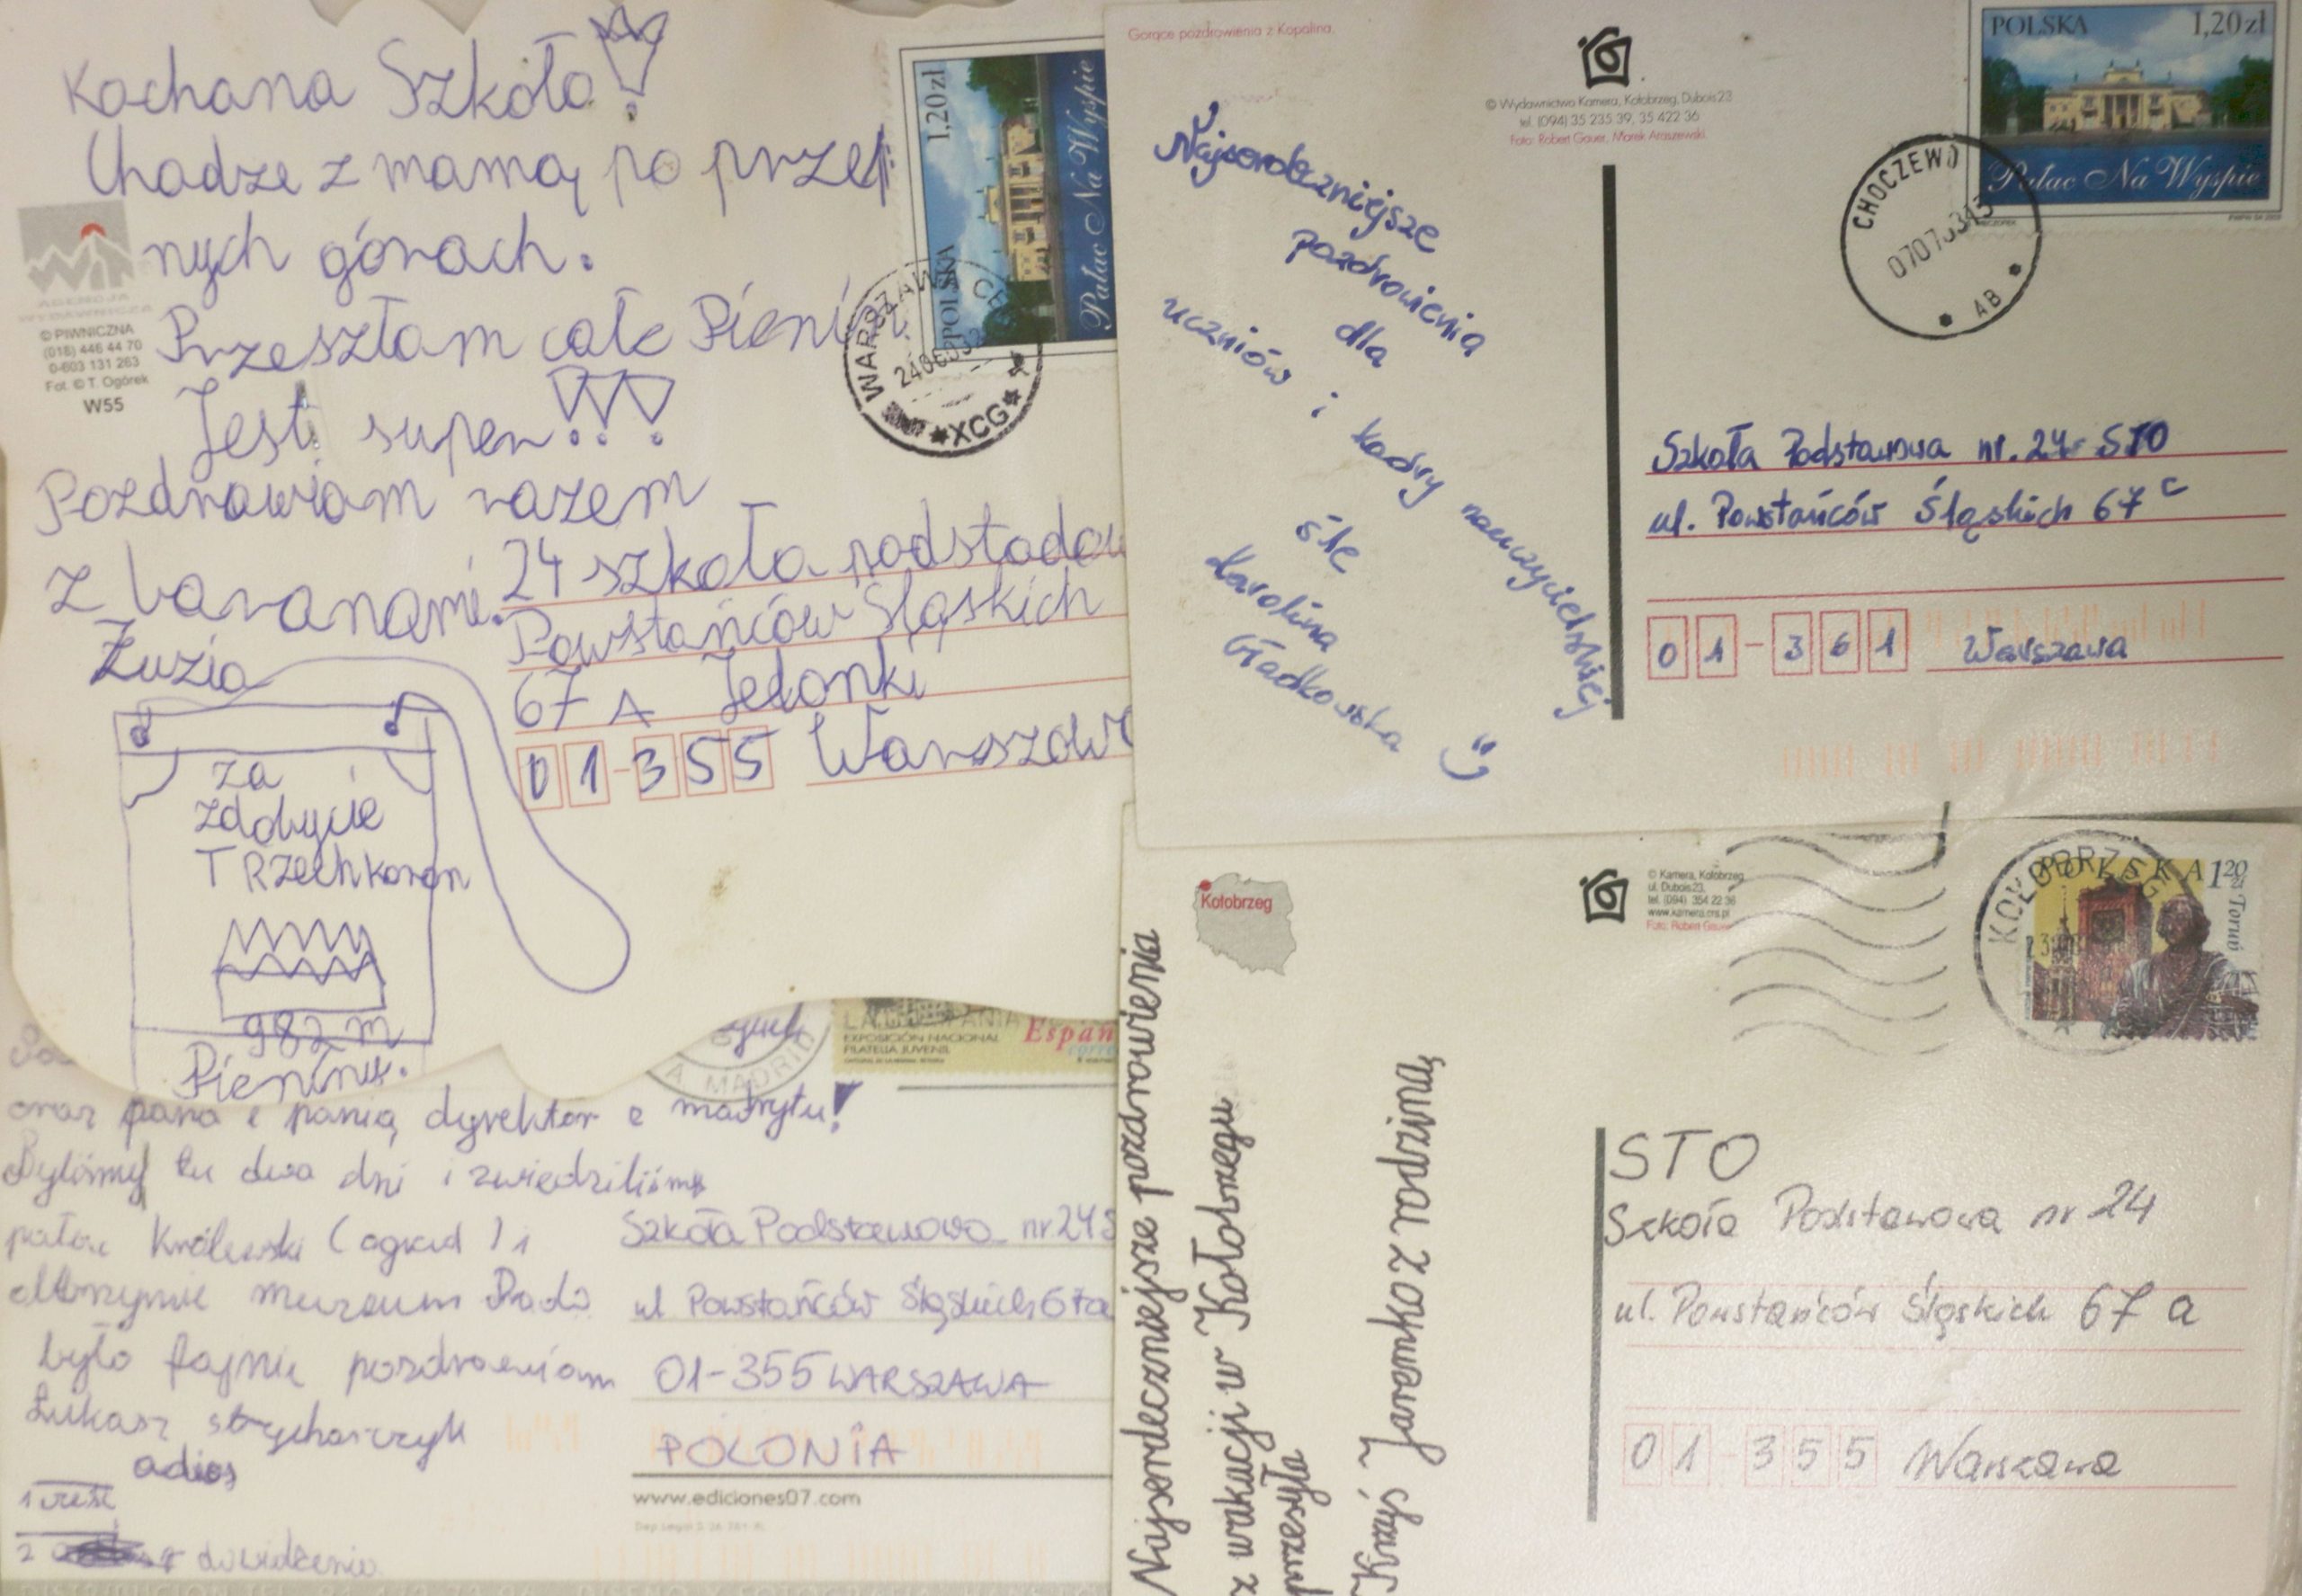 Kochana Szkoło!
Chodze z mamą po przep
nych górach.
Przeszłam całe Pieni
Jest super!!!
Pozdrawiam razem
z baranami.
Zuzia
za
zdobycie
TRzech koron
982 m
Pieniny.
AGENCJA
WYDAWNICZA
© PIWNICZNA
(018) 446 44 70
0-603 131 263
Fot. © T. Ogórek
W55
1,20 zł
POLSKA
Pałac Na Wyspie
WARSZAWA
XCG
24 szkoła podstadow
Powstańców Śląskich
67 A Jelonki
01-355 Warszawa
Gorące pozdrowienia z Kopalina.
© Wydawnictwo Kamera, Kołobrzeg, Dubois 23
tel. (094) 35 235 39, 35 422 36
Foto: Robert Gauer, Marek Ataszewski.
Najserdeczniejsze
pozdrowienia
dla
uczniów i kadry nauczycielskiej
śle
Karolina
Gładkowska
POLSKA 1,20 zł
Pałac Na Wyspie
CHOCZEWO
AB
Szkoła Podstawowa nr. 24 STO
ul. Powstańców Śląskich 67 c
01-361 Warszawa
oraz pana i panią dyrektor z madrytu!
Byliśmy tu dwa dni i zwiedziliśmy
pałac Królewski (ogród) i
olbrzymie muzeum Prado
było fajnie pozdrawiam
Łukasz strycharczyk
adios
dowidzenia
MADRID
EXPOSICIÓN NACIONAL
FILATELIA JUVENIL
Españ
Szkoła Podstawowa nr 24 S
ul Powstańców Śląskich 67a
01-355 WARSZAWA
POLONIA
www.ediciones07.com
Kołobrzeg
© Kamera, Kołobrzeg
ul. Dubois 23,
tel. (094) 354 22 36
www.kamera.cns.pl
Foto: Robert Gauer
Najserdeczniejsze pozdrowienia
z wakacji w Kołobrzegu
przesyła
Krzyś Jaremko z rodziną
KOŁOBRZEG
POLSKA 120 zł
Toruń
STO
Szkoła Podstawowa nr 24
ul. Powstańców Śląskich 67 a
01-355 Warszawa